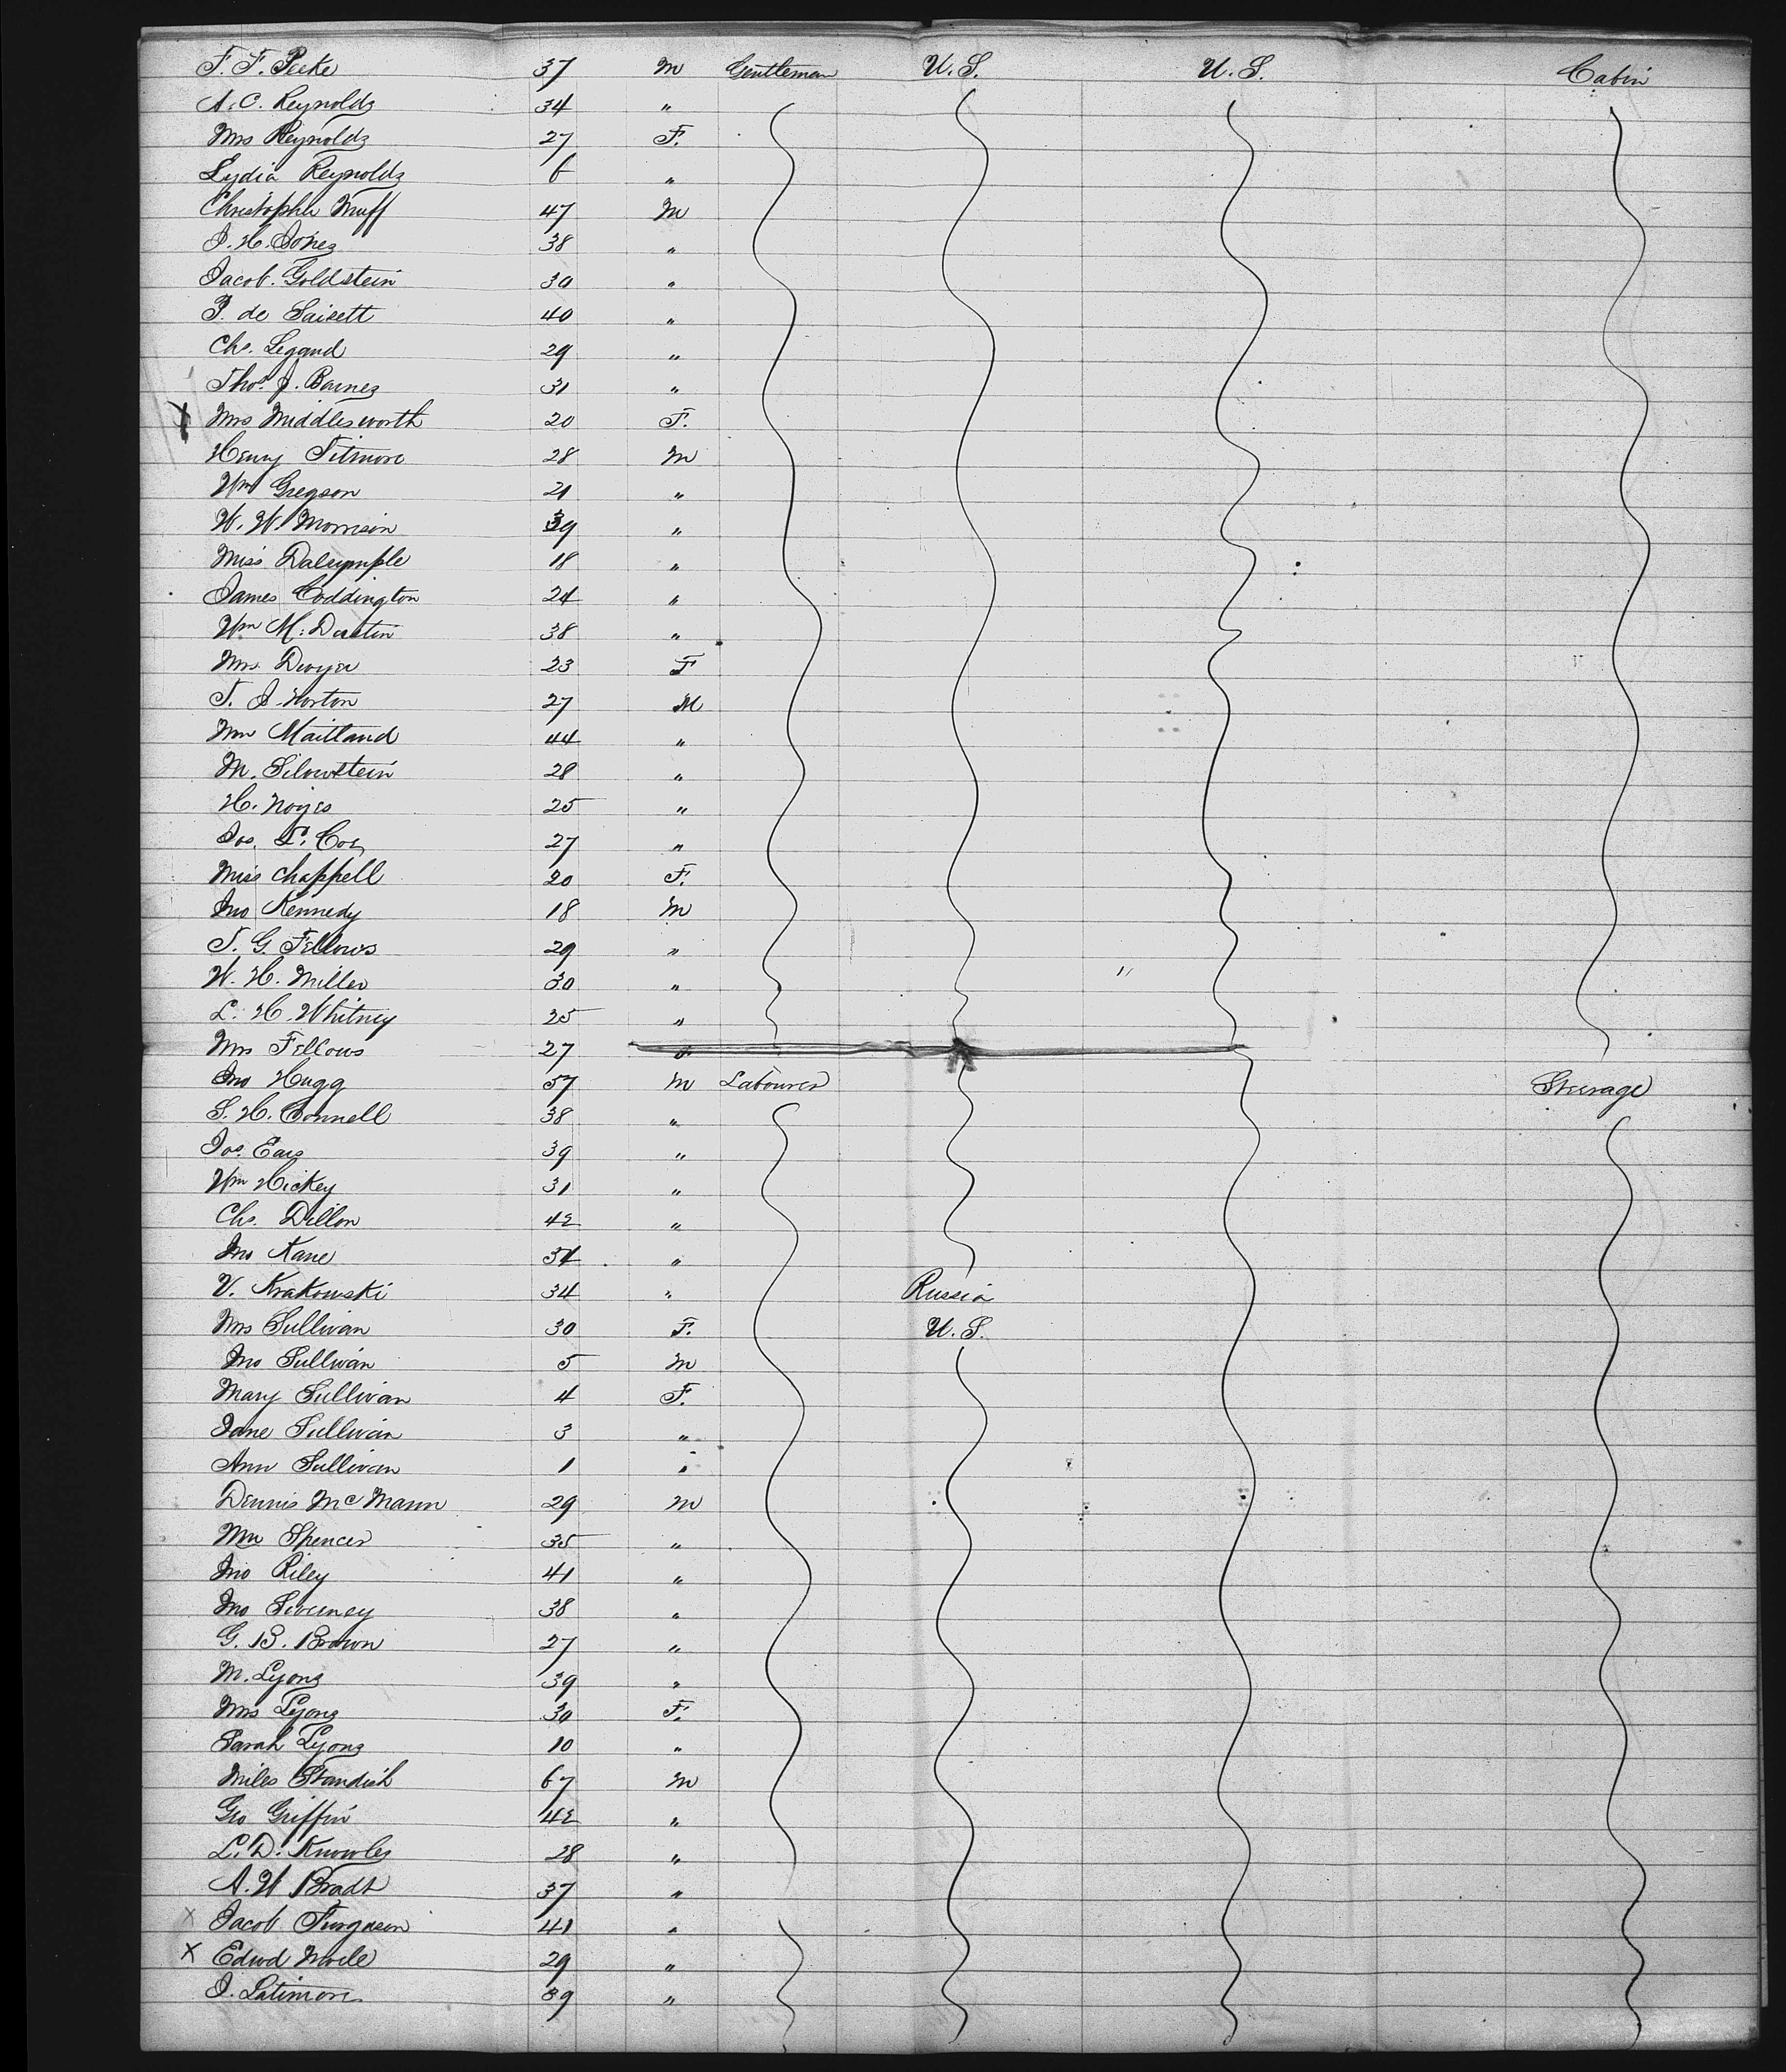 F. F. Peeke 37 M Gentleman U.S. U.S. Cabin
A. C. Reynolds 34 "
Mrs Reynolds 27 F.
Lydia Reynolds 6 "
Christopher Muff 47 M
J. H. Jones 38 "
Jacob Goldstein 30 "
P. de Saisett 40 "
Chs. Legand 29 "
Thos. J. Barnes 31 "
X Mrs Middlesworth 20 F.
Henry Titmore 28 M
Wm Gregson 21 "
W. W. Morrison 39 "
Miss Dalrymple 18 "
James Coddington 24 "
Wm M. Dustin 38 "
Mrs Dwyer 23 F
T. J. Horton 27 M
Wm Maitland 44 "
M. Silverstein 28 "
H. Noyes 25 "
Jos. L. Coz 27 "
Miss Chappell 20 F.
Jno Kennedy 18 M
T. G. Fellows 29 "
W. H. Miller 30 "
L. H. Whitney 25 "
Mrs Fellows 27 F
Jno Hugg 37 M Labourer Steerage
S. H. Connell 38 "
Jos. Ears 39 "
Wm Hickey 31 "
Chs. Dillon 42 "
Jno Kane 34 "
V. Krakowski 34 " Russia
Mrs Sullivan 30 F. U.S.
Jno Sullivan 5 M
Mary Sullivan 4 F.
Jane Sullivan 3 "
Ann Sullivan 1 "
Dennis McMann 29 M
Wm Spencer 35 "
Jno Riley 41 "
Jno Sweeney 38 "
G. B. Brown 27 "
M. Lyons 39 "
Mrs Lyons 30 F.
Sarah Lyons 10 "
Miles Standish 67 M
Geo Griffin 42 "
L. D. Knowles 28 "
A. W Bradt 37 "
X Jacob Furgason 41 "
X Edwd 29 "
J. Latimore 39 "